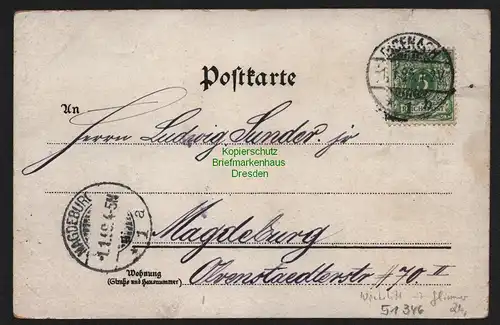 EISENACH
Postkarte
An
Herrn Ludwig Sunder jr
Kopierschutz
Briefmarkenhaus
Dresden
MAGDEBURG
1.1.99.4-5N
* 1 a
Magdeburg
Wohnung
(Straße und Hausnummer)
Olvenstaedterstr #70 II
51346